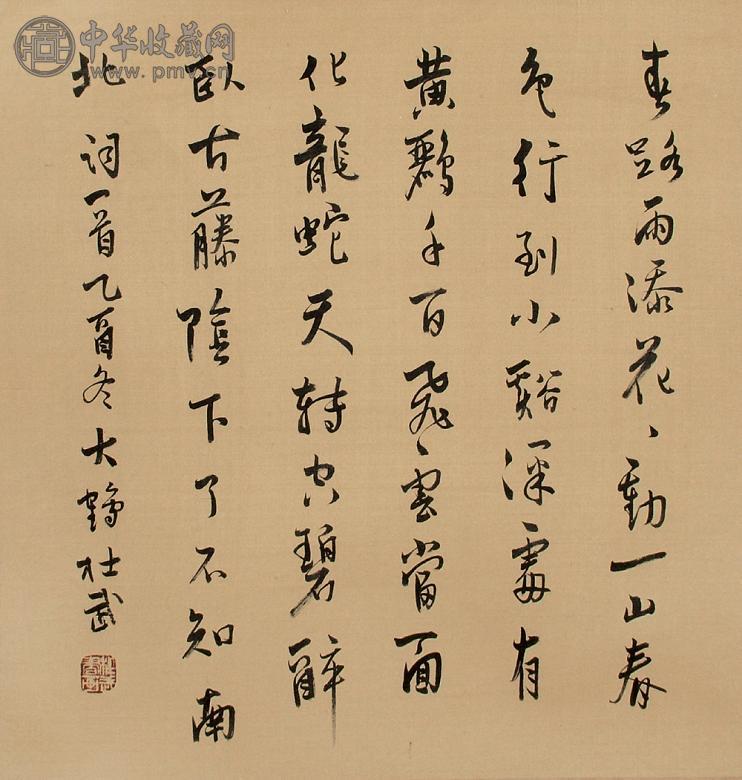 中华收藏网
www.pmv.cn
春路雨添花、動一山春
色行到小谿深處有
黄鸝千百飛雲當面
化龍蛇天轉空碧醉
臥古藤陰下了不知南
北 詞一首乙酉冬大鶴杜武